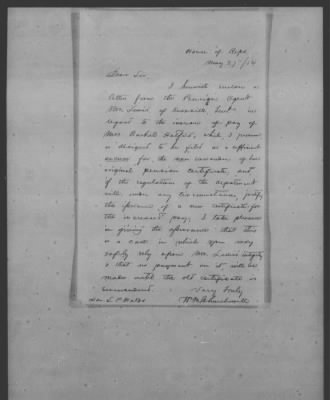 House of Reps
May 27th /54
Dear Sir,
I herewith enclose a
letter from the Pension Agent
Mr Lewis of Knoxville Tent in
regard to the increase of pay of
Mrs. Rachel, which I presume
is designed to be filed as a sufficient
excuse for the non surrender of her
original pension certificate, and
if the regulations of the department
will under any circumstances, justify
the issuance of a new certificate for
the increased pay; I take pleasure
in giving the assurance that this
is a case in which you may
safely rely upon Mr. Lewis' integrity
& that no payment on it will be
made until the old certificate is
surrendered. Very truly
Hon. L. P. Waldo Wm M Churchwell